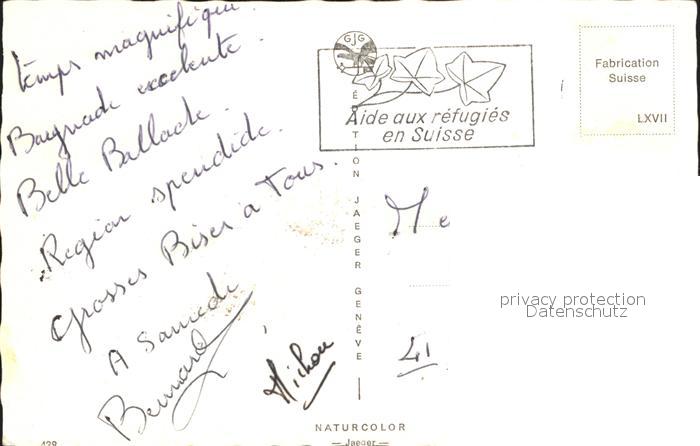 temps magnifique.
Baignade excelente.
Belle Ballade.
Region spendide.
Grosses Bises a Tous.
A Samedi
Bernard
Michou
GJG
Aide aux réfugiés
en Suisse
Fabrication
Suisse
LXVII
ÉDITION JAEGER GENÈVE
Me
41
privacy protection
Datenschutz
NATURCOLOR
— Jaeger —